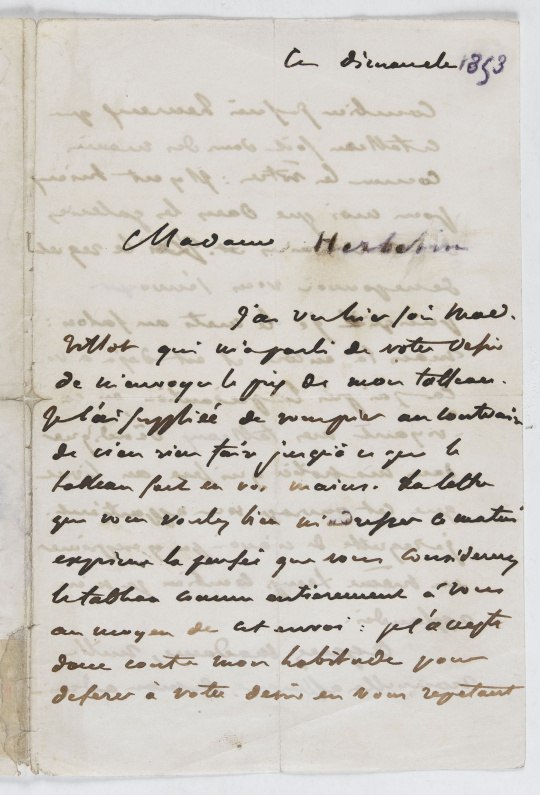 Ce dimanche 1853
Madame Herbelin
J'ai vu hier soir Mad.
Villot qui m'a parlé de votre désir
de m'envoyer le prix de mon tableau.
Je l'ai suppliée de vous prier au contraire
de n'en rien faire jusqu'à ce que le
tableau soit en vos mains. La lettre
que vous voulez bien m'adresser ce matin
exprime la pensée que vous considérez
le tableau comme entièrement à vous
au moyen de cet envoi : je l'accepte
donc contre mon habitude pour
déférer à votre désir en vous répétant